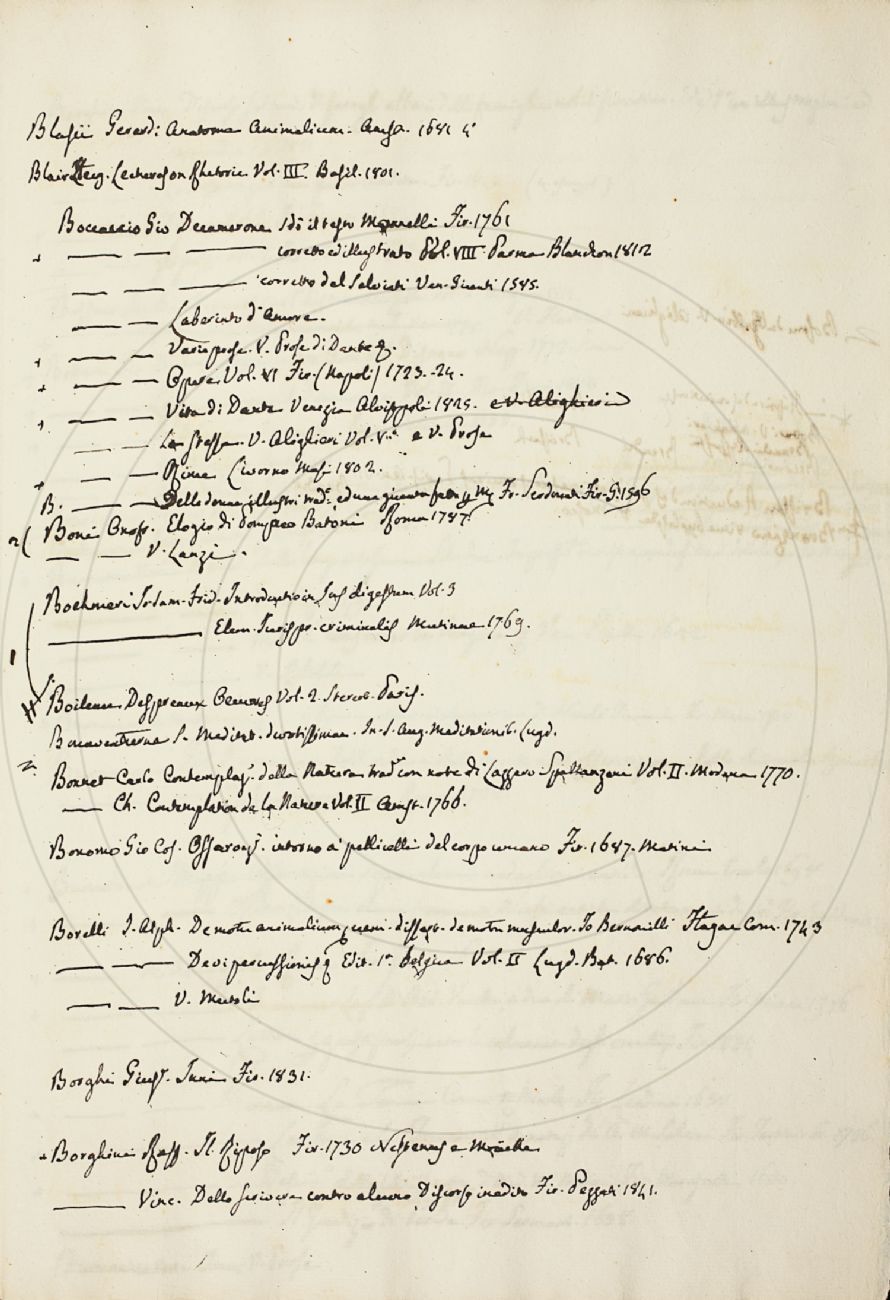 Blasii Gerardi Anatome Animalium. Amst. 1681 4°
Blair Ug. Lectures on Rhetoric Vol. III. Basil. 1801.
Boccaccio Gio Decamerone sdo il testo Mannelli Fir. 1761
+ — — — corretto ed illustrato Vol. VIII Parma Blanchon 1812
— — — corretto dal Salviati Ven. Giunti 1585.
— — Laberinto d'Amore.
+ — — Varie prose. V. Prose di Dante &.
+ — — Opere Vol. VI Fir. (Napoli) 1723.-24.
+ — — Vita di Dante Venezia Alvisopoli 1825. e V. Alighieri
— — La stessa. V. Alighieri Vol. V.° e V. Prose
+ — — Rime Livorno Masi 1802.
B. — — Delle donne illustri trad. ed una giunta fatta Fr. Serdonati Fir. G. 1596
2 ( Boni Onofr. Elogio di Pompeo Batoni Roma 1787.
— — V. Lanzi.
Boehmeri Introductio in Jus digestum Vol. 3
— Elem. Jurispr. criminalis Mutinae 1769.
1
Boileau Despreaux Oeuvres Vol. 2. Stereot. Paris.
Bonaventurae S. Meditat. devotissimae. In S. Aug. Meditationib. Lugd.
Bonnet Carlo Contemplaz. della Natura trad. con note di Lazzaro Spallanzani Vol. II. Modena 1770.
— Ch. Contemplation de la Nature Vol. II Amst. 1766.
Bonomo Gio Cos. Osservaz. intorno a' pellicelli del corpo umano Fir. 1687. Matini
Borelli J. Alph. De motu animalium, dissert. de motu musculor. Jo Bernoulli Hagae Com. 1743
— — De vi percussionis & Edit. 1a Belgica Vol. II Lugd. Bat. 1686.
— — V.
Borghi Gius. Inni Fir. 1831.
+ Borghini Raff. Il Riposo Fir. 1730 Nestenus e Moücke
— Vinc. Dello scrivere contro alcuno Discorso inedito Fir. Pezzati 1841.